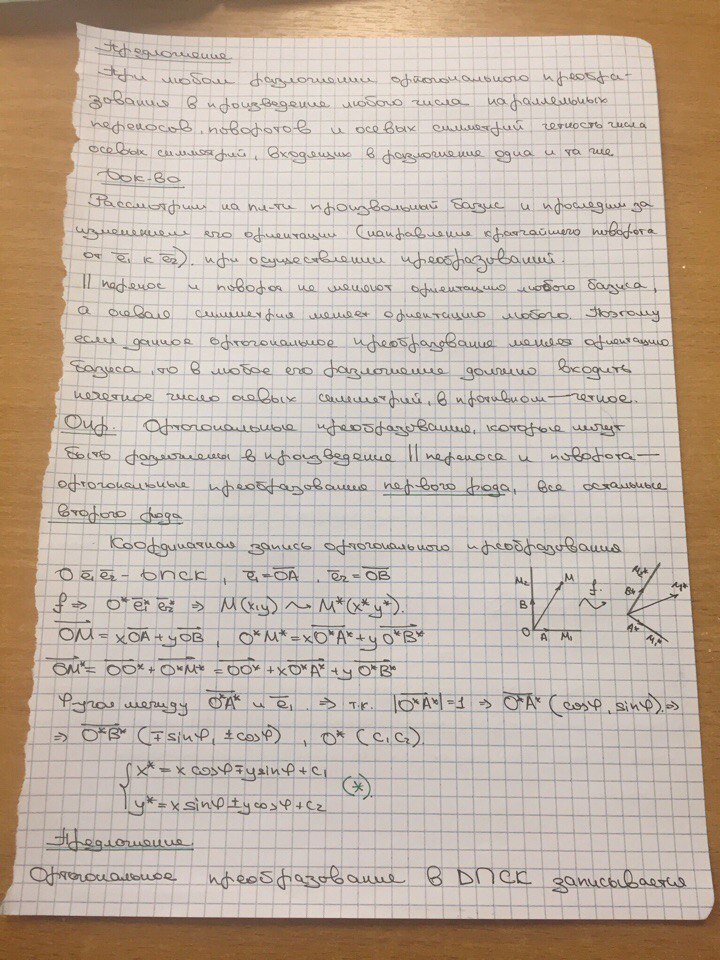 Предложение
При любом разложении ортогонального преобра-
зования в произведение любого числа параллельных
переносов, поворотов и осевых симметрий четность числа
осевых симметрий, входящих в разложение одна и та же
Док-во
Рассмотрим на пл-ти произвольный базис и проследим за
изменением его ориентации (направление кратчайшего поворота
от e̅₁ к e̅₂), при осуществлении преобразований.
|| перенос и поворот не меняют ориентацию любого базиса,
а осевая симметрия меняет ориентацию любого. Поэтому
если данное ортогональное преобразование меняет ориентацию
базиса, то в любое его разложение должно входить
нечетное число осевых симметрий, в противном — четное.
Опр. Ортогональные преобразование, которые могут
быть разложены в произведение || переноса и поворота —
ортогональные преобразование первого рода, все остальные
второго рода
Координатная запись ортогонального преобразования
O e̅₁ e̅₂ - ДПСК, e̅₁ = OA, e̅₂ = OB
f ⇒ O* e̅₁* e̅₂* ⇒ M(x,y) ⤳ M*(x* y*).
OM = xOA + yOB, O*M* = xO*A* + yO*B*
OM* = OO* + O*M* = OO* + xO*A* + yO*B*
φ угол между O*A* и e̅₁ ⇒ т.к. |O*A*| = 1 ⇒ O*A* (cosφ, sinφ) ⇒
⇒ O*B* (∓sinφ, ±cosφ), O* (c₁ c₂).
x* = x cosφ ∓ y sinφ + c₁
(*)
y* = x sinφ ± y cosφ + c₂
M₂
B
O
A
M₁
M
f
M₂*
B*
A*
M₁*
M*
Предложение
Ортогональное преобразование в ДПСК записывается